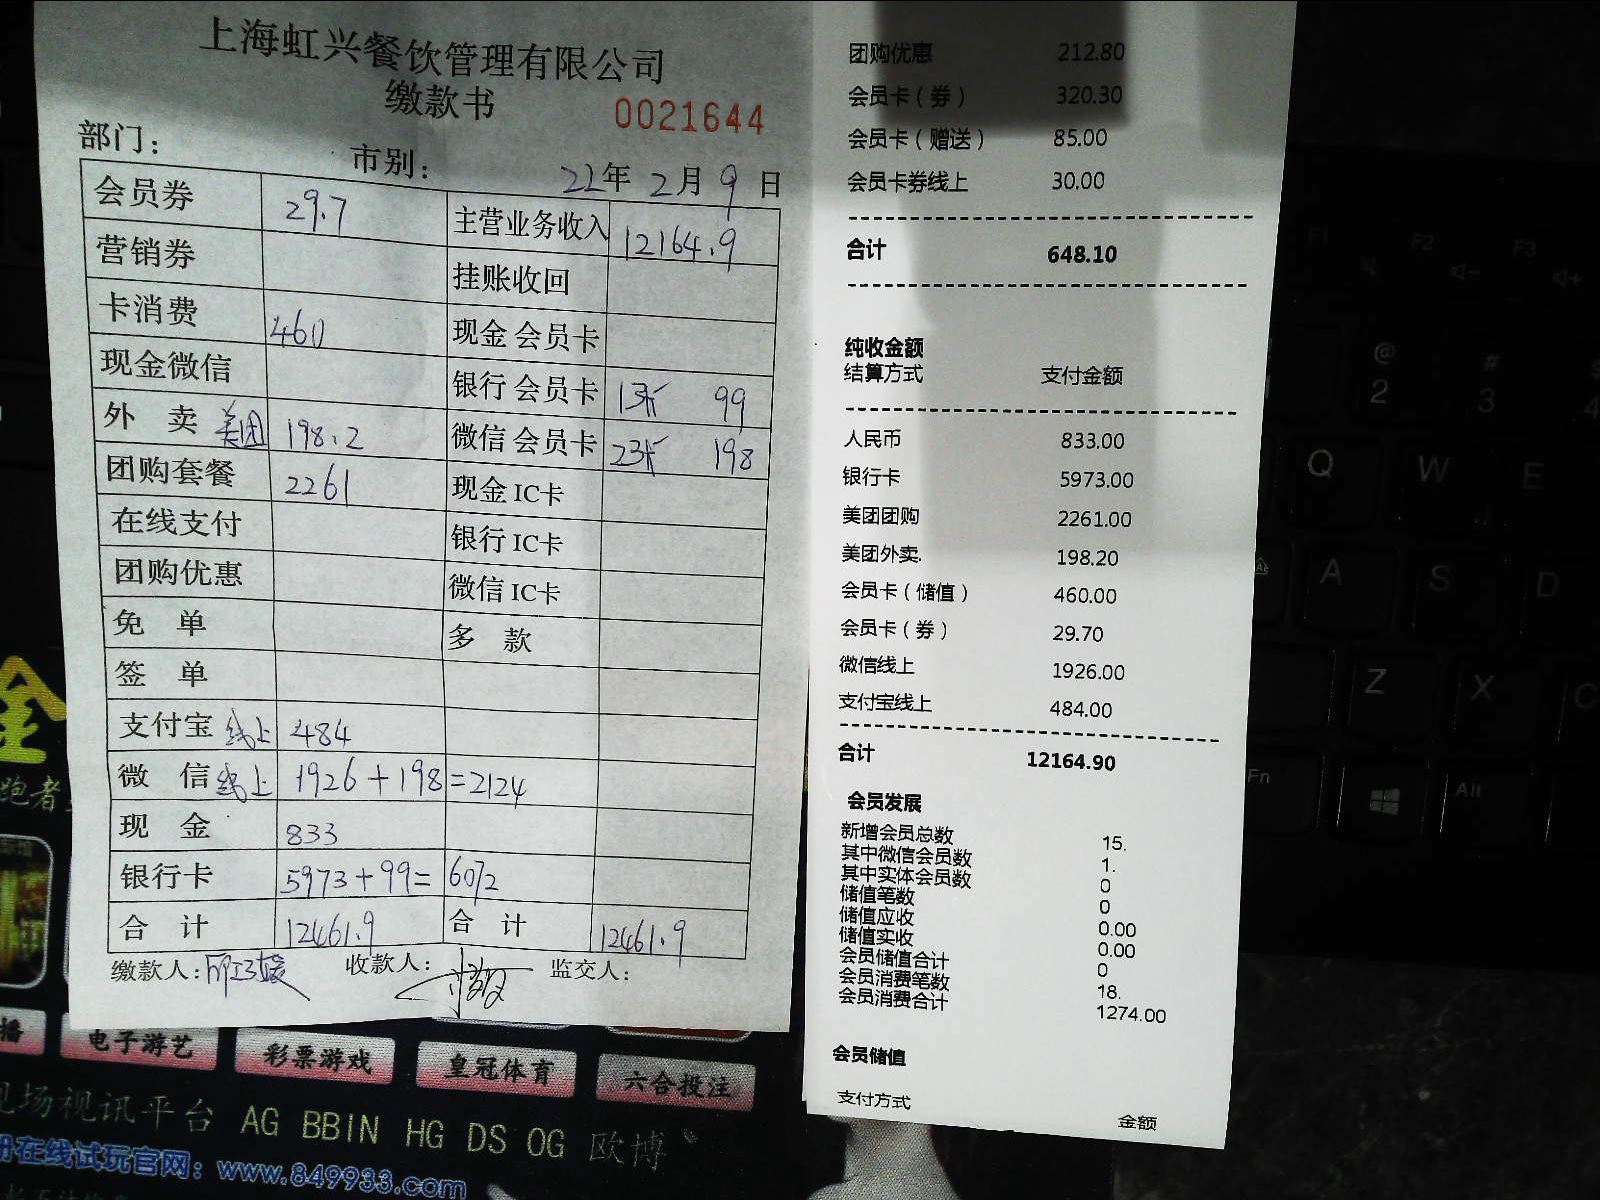 上海虹兴餐饮管理有限公司
缴款书 0021644
部门： 市别： 22年2月9日
会员券 29.7 主营业务收入 12164.9
营销券 挂账收回
卡消费 460 现金 会员卡
现金微信 银行 会员卡 1张 99
外 卖 美团 198.2 微信 会员卡 2张 198
团购套餐 2261 现金 IC卡
在线支付 银行 IC卡
团购优惠 微信 IC卡
免 单 多 款
签 单
支付宝 线上 484
微 信 线上 1926+198=2124
现 金 833
银行卡 5973+99=6072
合 计 12461.9 合 计 12461.9
缴款人： 收款人： 监交人：
团购优惠 212.80
会员卡（券） 320.30
会员卡（赠送） 85.00
会员卡券线上 30.00
合计 648.10
纯收金额
结算方式 支付金额
人民币 833.00
银行卡 5973.00
美团团购 2261.00
美团外卖. 198.20
会员卡（储值） 460.00
会员卡（券） 29.70
微信线上 1926.00
支付宝线上 484.00
合计 12164.90
会员发展
新增会员总数 15.
其中微信会员数 1.
其中实体会员数 0
储值笔数 0
储值应收 0.00
储值实收 0.00
会员储值合计 0
会员消费笔数 18.
会员消费合计 1274.00
会员储值
支付方式 金额
金
跑者
播 电子游艺 彩票游戏 皇冠体育 六合投注
现场视讯平台 AG BBIN HG DS OG 欧博
册在线试玩官网：www.849933.com
F1 F2 F3
@ 2 # 3
Q W E
A S D
Z X C
Fn Alt